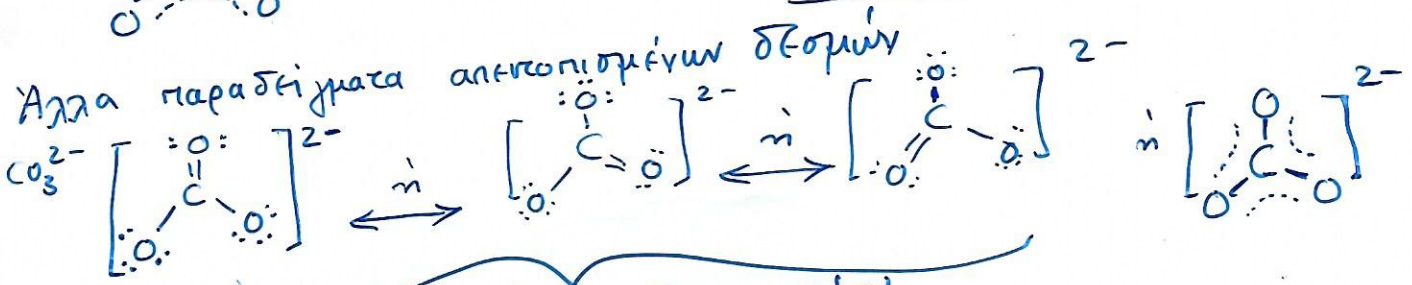 O O
Άλλα παραδείγματα απεντοπισμένων δεσμών
CO₃²⁻ [:O: || C O O]²⁻ ή ⟷ [:O: C = O O]²⁻ ή ⟷ [:O: C O O]²⁻ ή [O C O O]²⁻